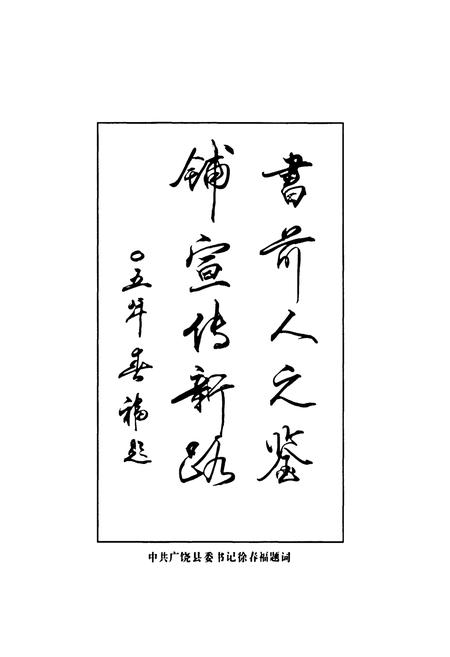 書前人之鉴
铺宣传新路
〇五年春福题
中共广饶县委书记徐春福题词